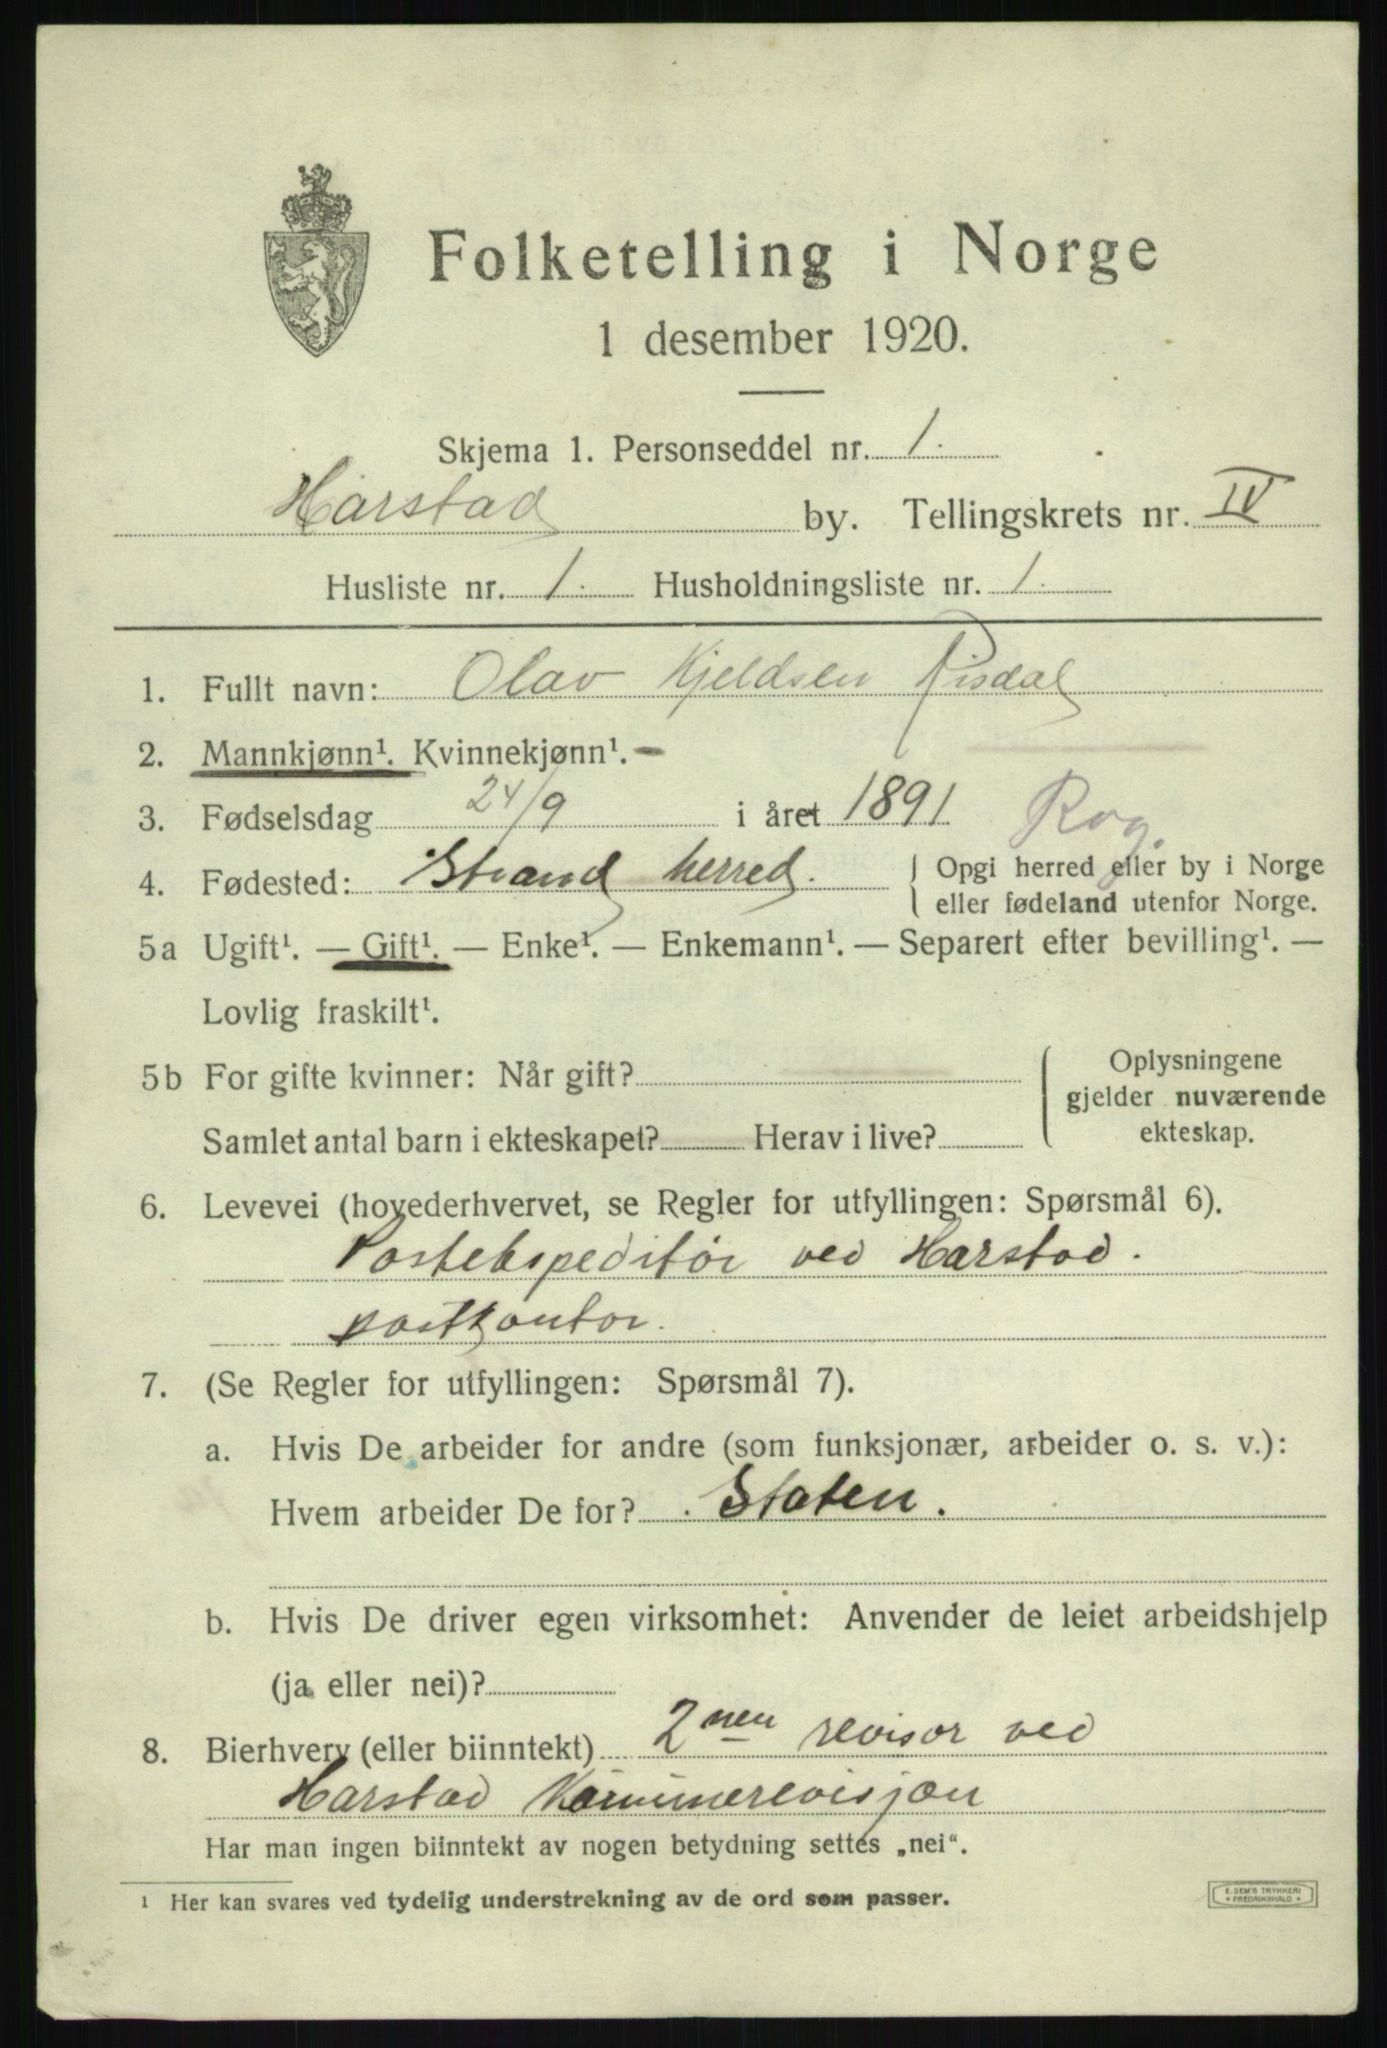 Folketelling i Norge
1 desember 1920.
Skjema 1. Personseddel nr. 1.
Harstad by. Tellingskrets nr. IV
Husliste nr. 1. Husholdningsliste nr. 1.
1. Fullt navn: Olav Kjeldsen Risdal
2. Mannkjønn¹. Kvinnekjønn¹. —
3. Fødselsdag 24/9 i året 1891 Rog.
4. Fødested: Strand herred. { Opgi herred eller by i Norge
eller fødeland utenfor Norge.
5a Ugift¹. — Gift¹. — Enke¹. — Enkemann¹. — Separert efter bevilling¹. —
Lovlig fraskilt¹.
5b For gifte kvinner: Når gift? { Oplysningene
gjelder nuværende
Samlet antal barn i ekteskapet? Herav i live? ekteskap.
6. Levevei (hovederhvervet, se Regler for utfyllingen: Spørsmål 6).
Postekspeditør ved Harstad.
postkontor.
7. (Se Regler for utfyllingen: Spørsmål 7).
a. Hvis De arbeider for andre (som funksjonær, arbeider o. s. v.):
Hvem arbeider De for? Staten.
b. Hvis De driver egen virksomhet: Anvender de leiet arbeidshjelp
(ja eller nei)?
8. Bierhverv (eller biinntekt) 2nen revisor ved
Harstad Kommunerevisjon
Har man ingen biinntekt av nogen betydning settes „nei“.
¹ Her kan svares ved tydelig understrekning av de ord som passer.
E. SEM'S TRYKKERI
* FREDRIKSHALD *